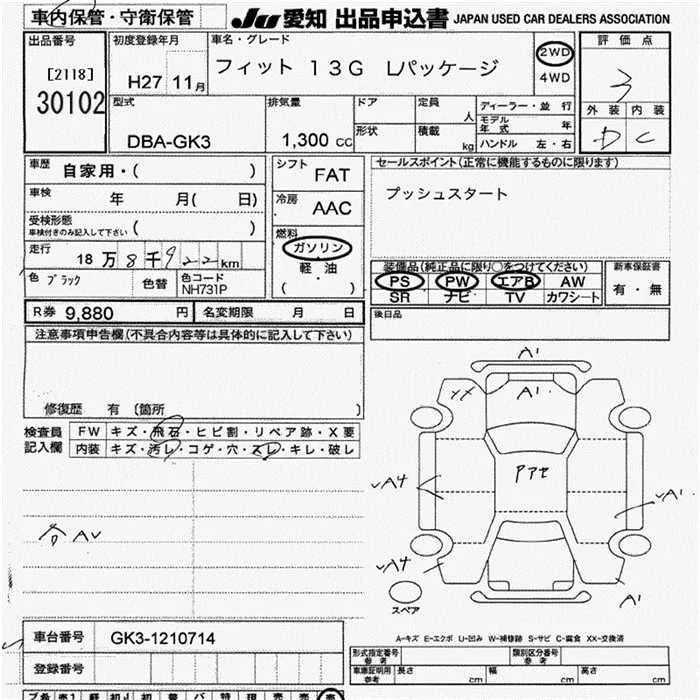 車内保管・守衛保管
JU 愛知 出品申込書 JAPAN USED CAR DEALERS ASSOCIATION
出品番号
[2118]
30102
初度登録年月
H27 11月
車名・グレード
フィット 13G Lパッケージ
2WD
4WD
評価点
3
外装 内装
D C
型式
DBA-GK3
排気量
1,300 cc
ドア
定員
人
形状
積載
kg
ディーラー・並行
モデル年式 年
ハンドル 左・右
車歴 自家用・( )
車検 年 月( 日)
受検形態
車検付きのみ記入して下さい ( )
走行 18万8千922km
色 ブラック 色替 色コード
NH731P
シフト
FAT
冷房
AAC
燃料
ガソリン
軽・油
( )
セールスポイント(正常に機能するものに限ります)
プッシュスタート
装備品(純正品に限り○をつけてください)
PS PW エアB AW
SR ナビ TV カワシート
新車保証書
有・無
R券 9,880 円 名変期限 月 日
後日品
注意事項申告欄(不具合内容等は具体的に記入して下さい)
修復歴 有 (箇所 )
検査員記入欄
FW キズ・飛石・ヒビ割・リペア跡・X要
内装 キズ・汚レ・コゲ・穴・スレ・キレ・破レ
各AV
A1
XX A1
Pアセ
A4
A1
A4
A1
スペア
A-キズ E-エクボ U-凹み W-補修跡 S-サビ C-腐食 XX-交換済
車台番号 GK3-1210714
登録番号
形式指定番号
参考
類別区分番号
参考
車庫証明用
参考
長さ cm 幅 cm 高さ cm